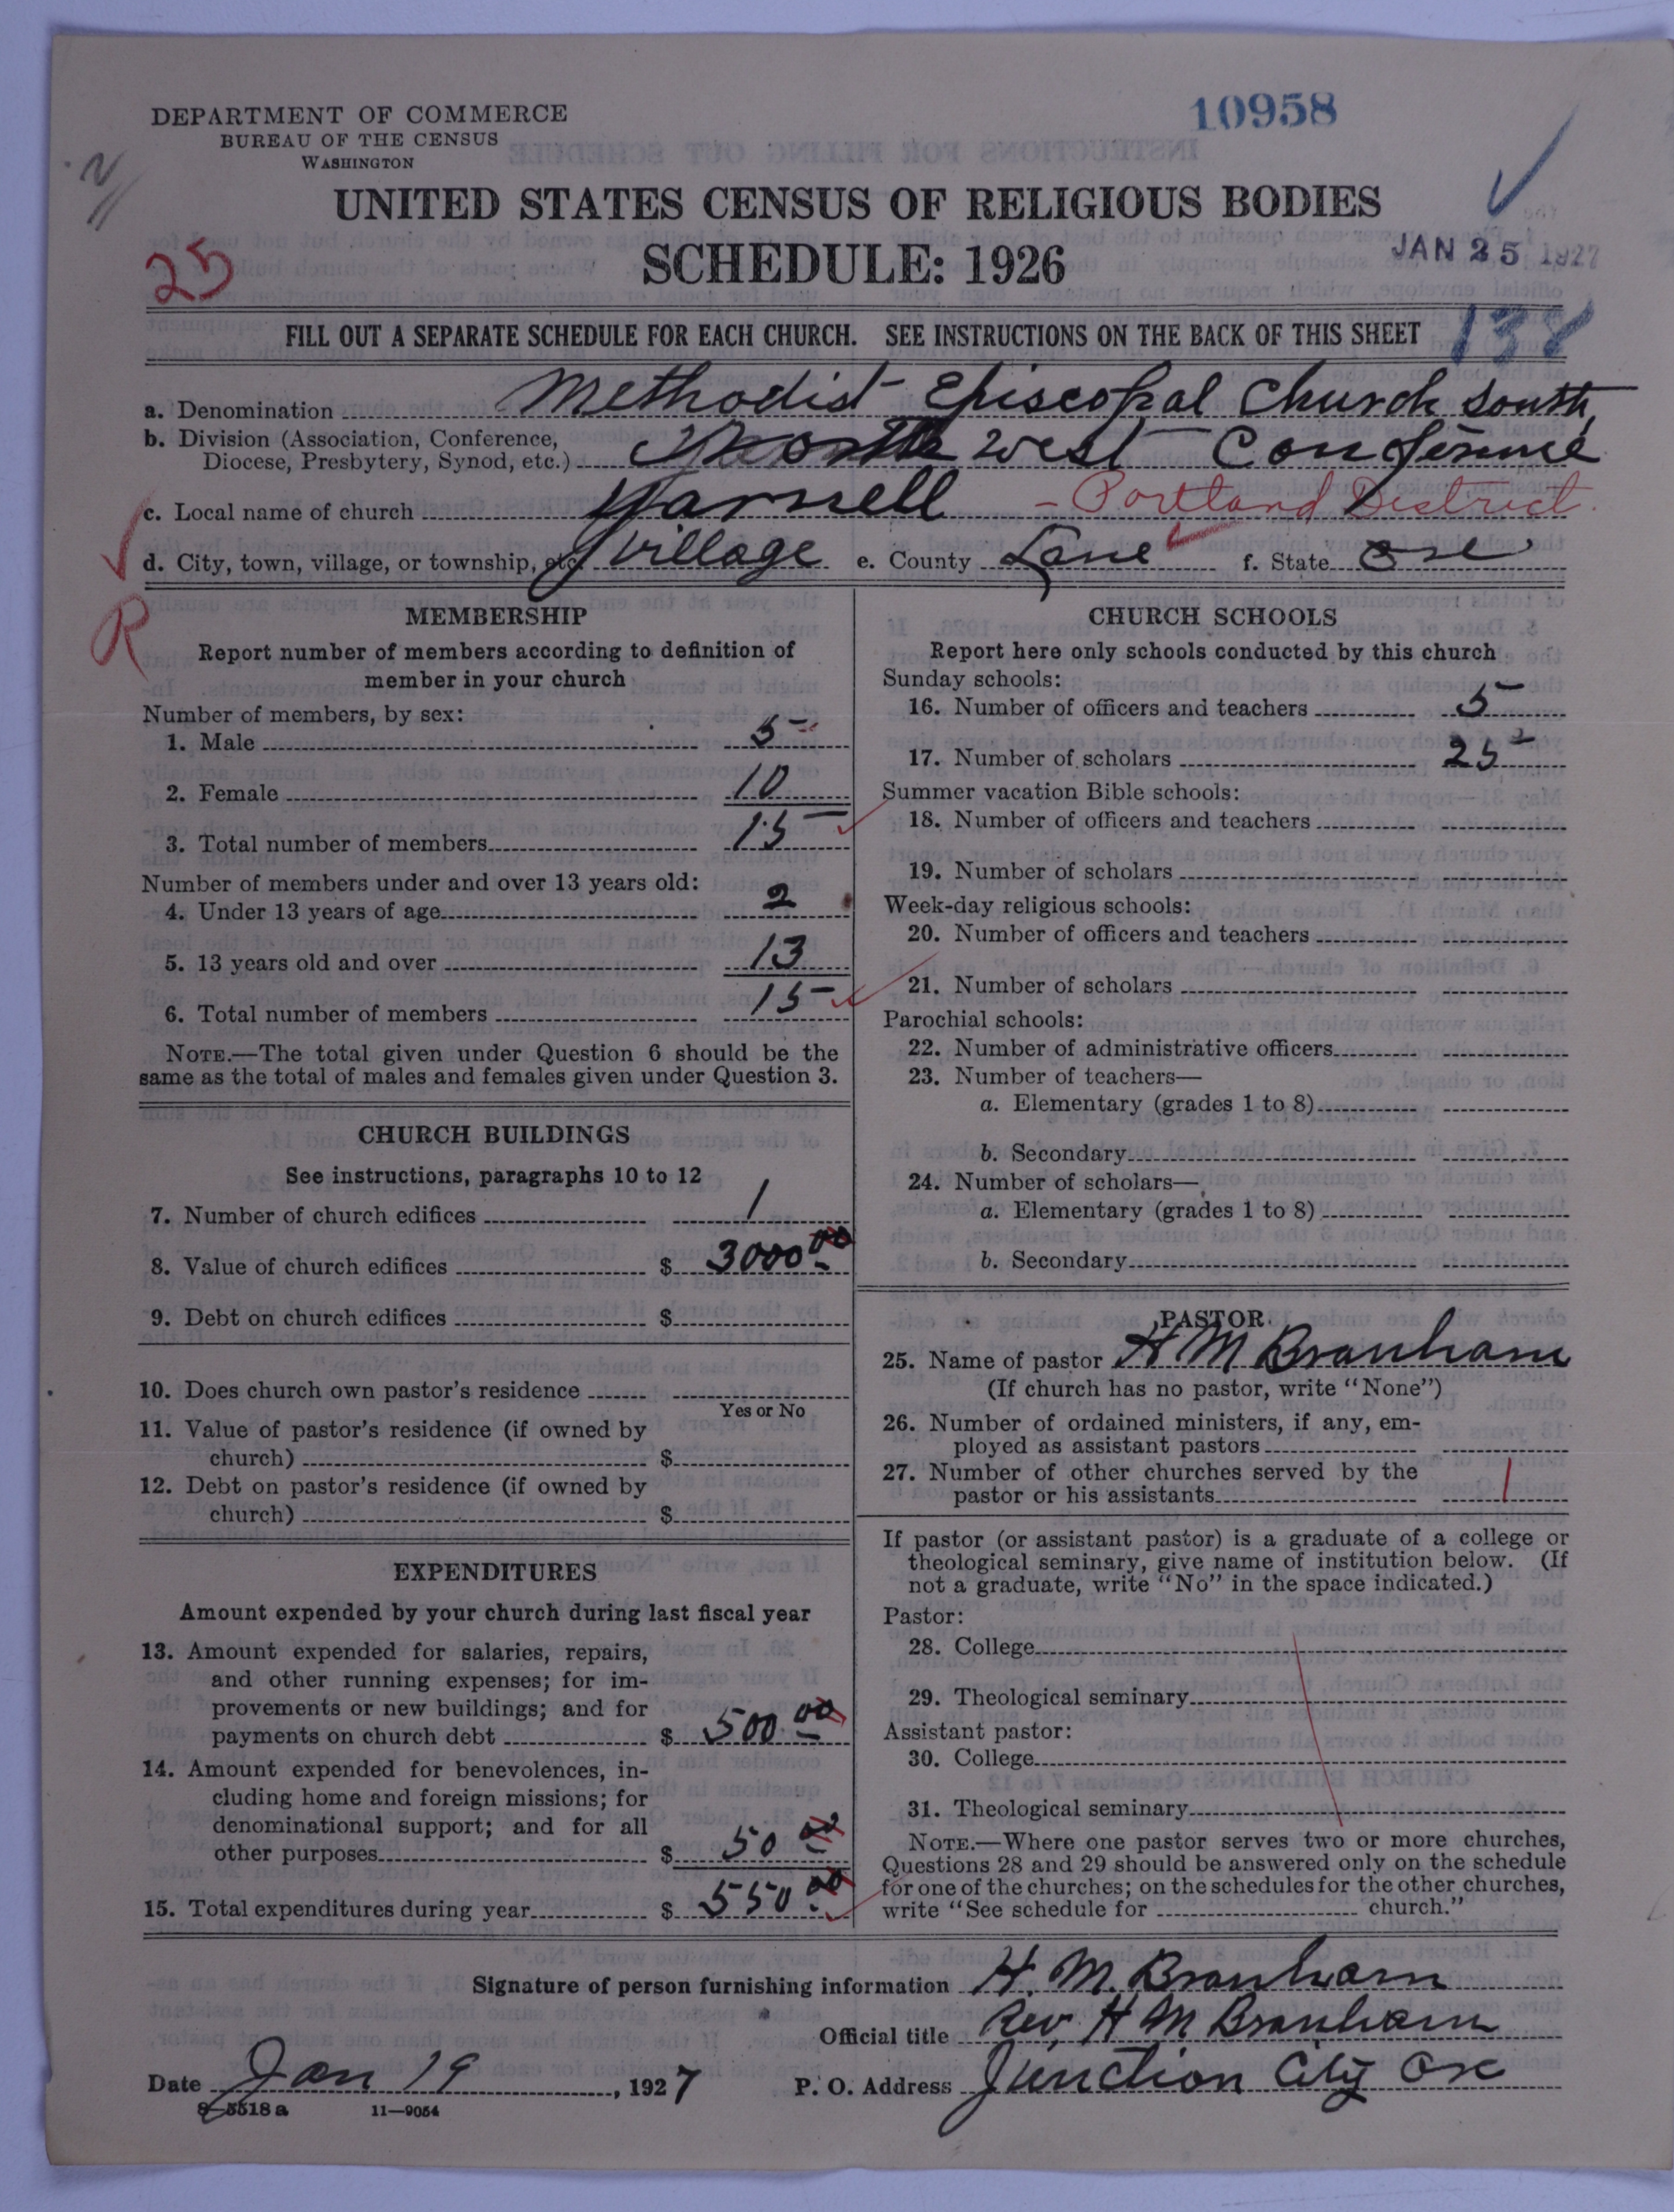 DEPARTMENT OF COMMERCE
BUREAU OF THE CENSUS
WASHINGTON
10958
UNITED STATES CENSUS OF RELIGIOUS BODIES
SCHEDULE: 1926
JAN 25 1927
25
FILL OUT A SEPARATE SCHEDULE FOR EACH CHURCH. SEE INSTRUCTIONS ON THE BACK OF THIS SHEET
138
a. Denomination Methodist Episcopal Church South,
b. Division (Association, Conference, Diocese, Presbytery, Synod, etc.) North West Conference
c. Local name of church Yarnell - Portland District.
d. City, town, village, or township, etc. village e. County Lane f. State Ore
R
MEMBERSHIP
Report number of members according to definition of
member in your church
Number of members, by sex:
1. Male 5
2. Female 10
3. Total number of members 15
Number of members under and over 13 years old:
4. Under 13 years of age 2
5. 13 years old and over 13
6. Total number of members 15
NOTE.—The total given under Question 6 should be the
same as the total of males and females given under Question 3.
CHURCH BUILDINGS
See instructions, paragraphs 10 to 12
7. Number of church edifices 1
8. Value of church edifices $ 3000 00
9. Debt on church edifices $
10. Does church own pastor's residence
Yes or No
11. Value of pastor's residence (if owned by
church) $
12. Debt on pastor's residence (if owned by
church) $
EXPENDITURES
Amount expended by your church during last fiscal year
13. Amount expended for salaries, repairs,
and other running expenses; for im-
provements or new buildings; and for
payments on church debt $ 500 00
14. Amount expended for benevolences, in-
cluding home and foreign missions; for
denominational support; and for all
other purposes $ 50 00
15. Total expenditures during year $ 550.00
CHURCH SCHOOLS
Report here only schools conducted by this church
Sunday schools:
16. Number of officers and teachers 5
17. Number of scholars 25
Summer vacation Bible schools:
18. Number of officers and teachers
19. Number of scholars
Week-day religious schools:
20. Number of officers and teachers
21. Number of scholars
Parochial schools:
22. Number of administrative officers
23. Number of teachers—
a. Elementary (grades 1 to 8)
b. Secondary
24. Number of scholars—
a. Elementary (grades 1 to 8)
b. Secondary
PASTOR
25. Name of pastor H M Branham
(If church has no pastor, write "None")
26. Number of ordained ministers, if any, em-
ployed as assistant pastors
27. Number of other churches served by the
pastor or his assistants 1
If pastor (or assistant pastor) is a graduate of a college or
theological seminary, give name of institution below. (If
not a graduate, write "No" in the space indicated.)
Pastor:
28. College
29. Theological seminary
Assistant pastor:
30. College
31. Theological seminary
NOTE.—Where one pastor serves two or more churches,
Questions 28 and 29 should be answered only on the schedule
for one of the churches; on the schedules for the other churches,
write "See schedule for church."
Signature of person furnishing information H. M. Branham
Official title Rev. H M Branham
Date Jan 19, 1927 P. O. Address Junction City Ore
8-5518a 11—9054